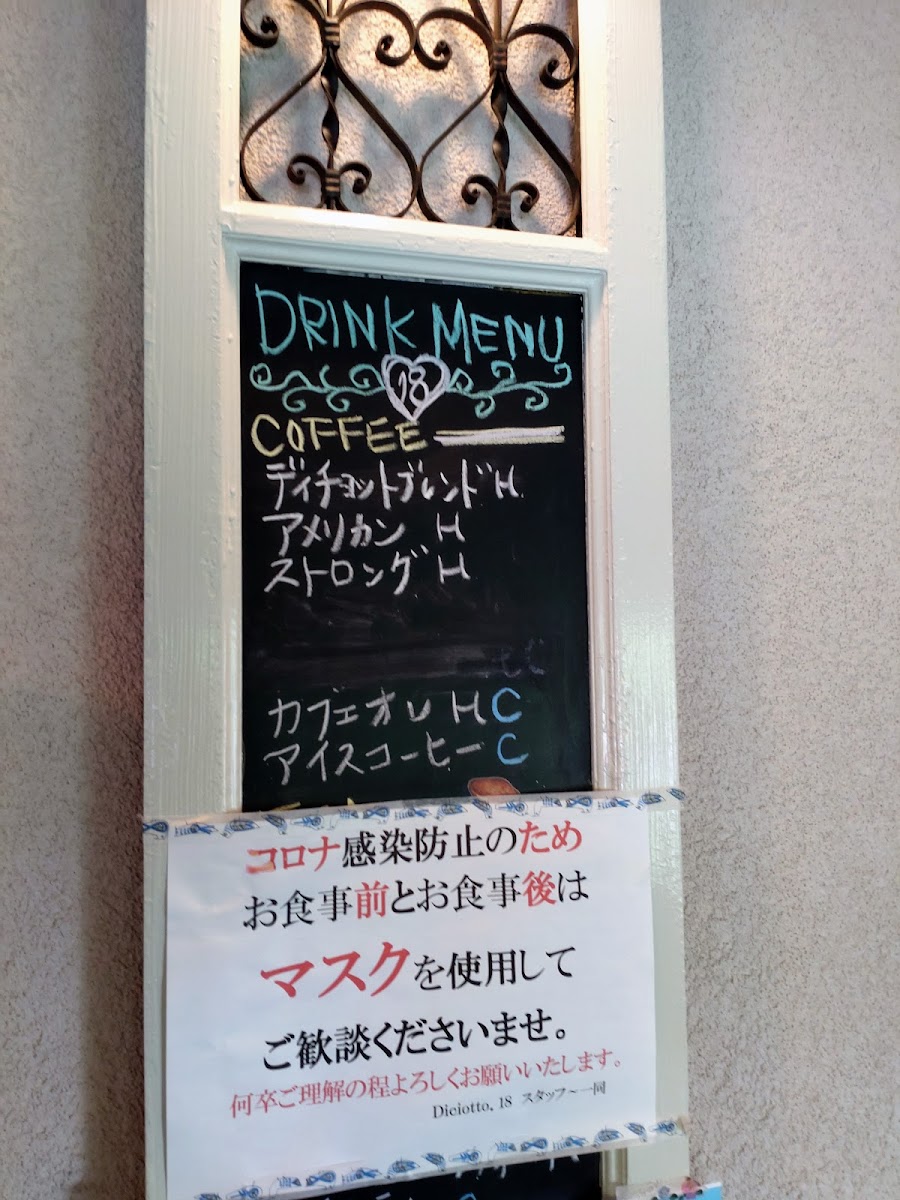 DRINK MENU
18
COFFEE
ディチョットブレンド H
アメリカン H
ストロング H
カフェオレ H C
アイスコーヒー C
コロナ感染防止のため
お食事前とお食事後は
マスクを使用して
ご歓談くださいませ。
何卒ご理解の程よろしくお願いいたします。
Diciotto, 18 スタッフ～一同